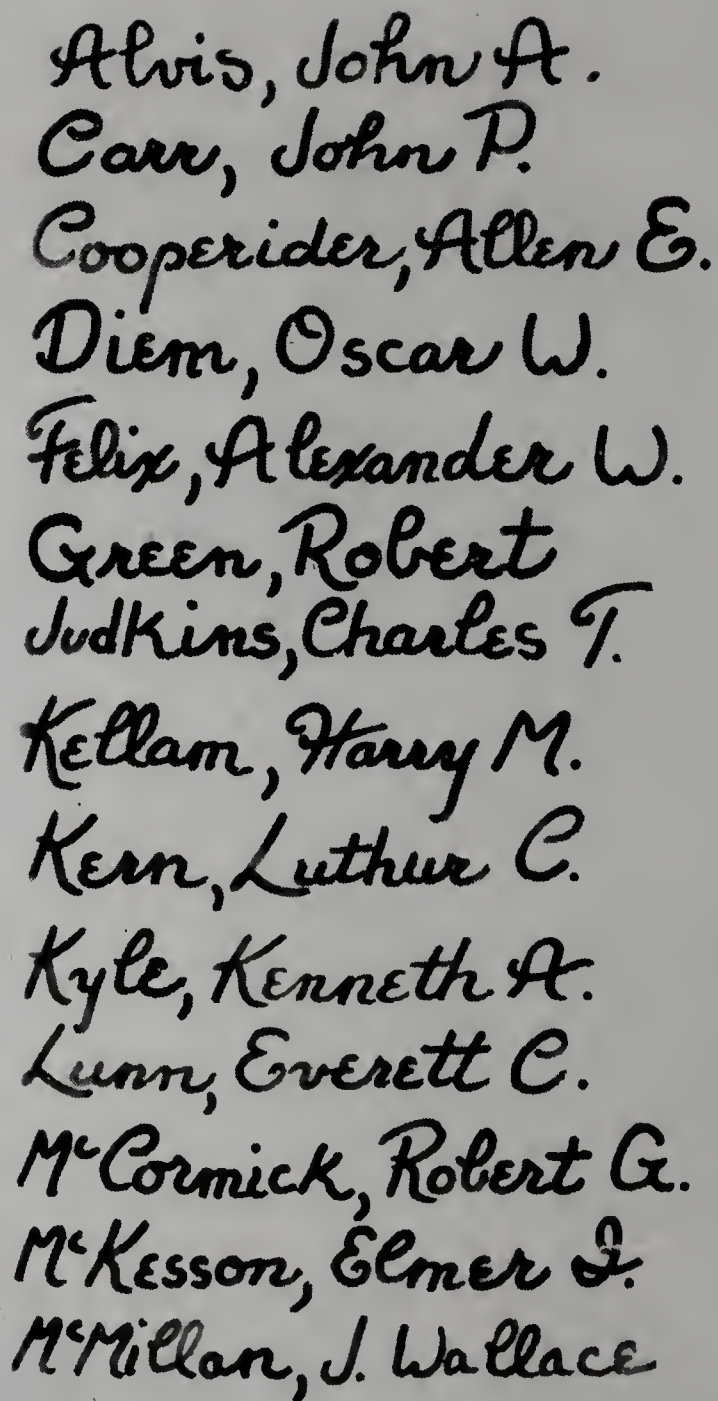 Alvis, John A.
Carr, John P.
Cooperider, Allen E.
Diem, Oscar W.
Felix, Alexander W.
Green, Robert
Judkins, Charles T.
Kellam, Harry M.
Kern, Luthur C.
Kyle, Kenneth A.
Lunn, Everett C.
McCormick, Robert G.
McKesson, Elmer I.
McMillan, J. Wallace